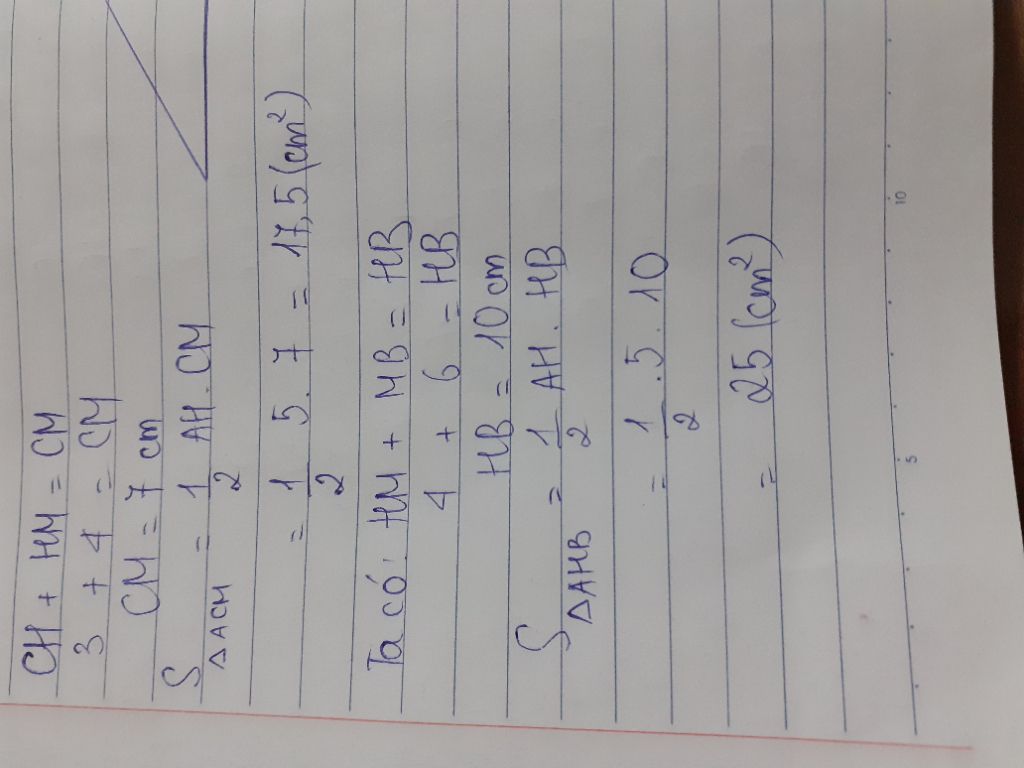 CH + HM = CM
3 + 4 = CM
CM = 7 cm
S ΔACM = 1/2 AH . CM
= 1/2 5 . 7 = 17,5 (cm²)
Ta có: HM + MB = HB
4 + 6 = HB
HB = 10 cm
S ΔAHB = 1/2 AH . HB
= 1/2 . 5 . 10
= 25 (cm²)
5
10